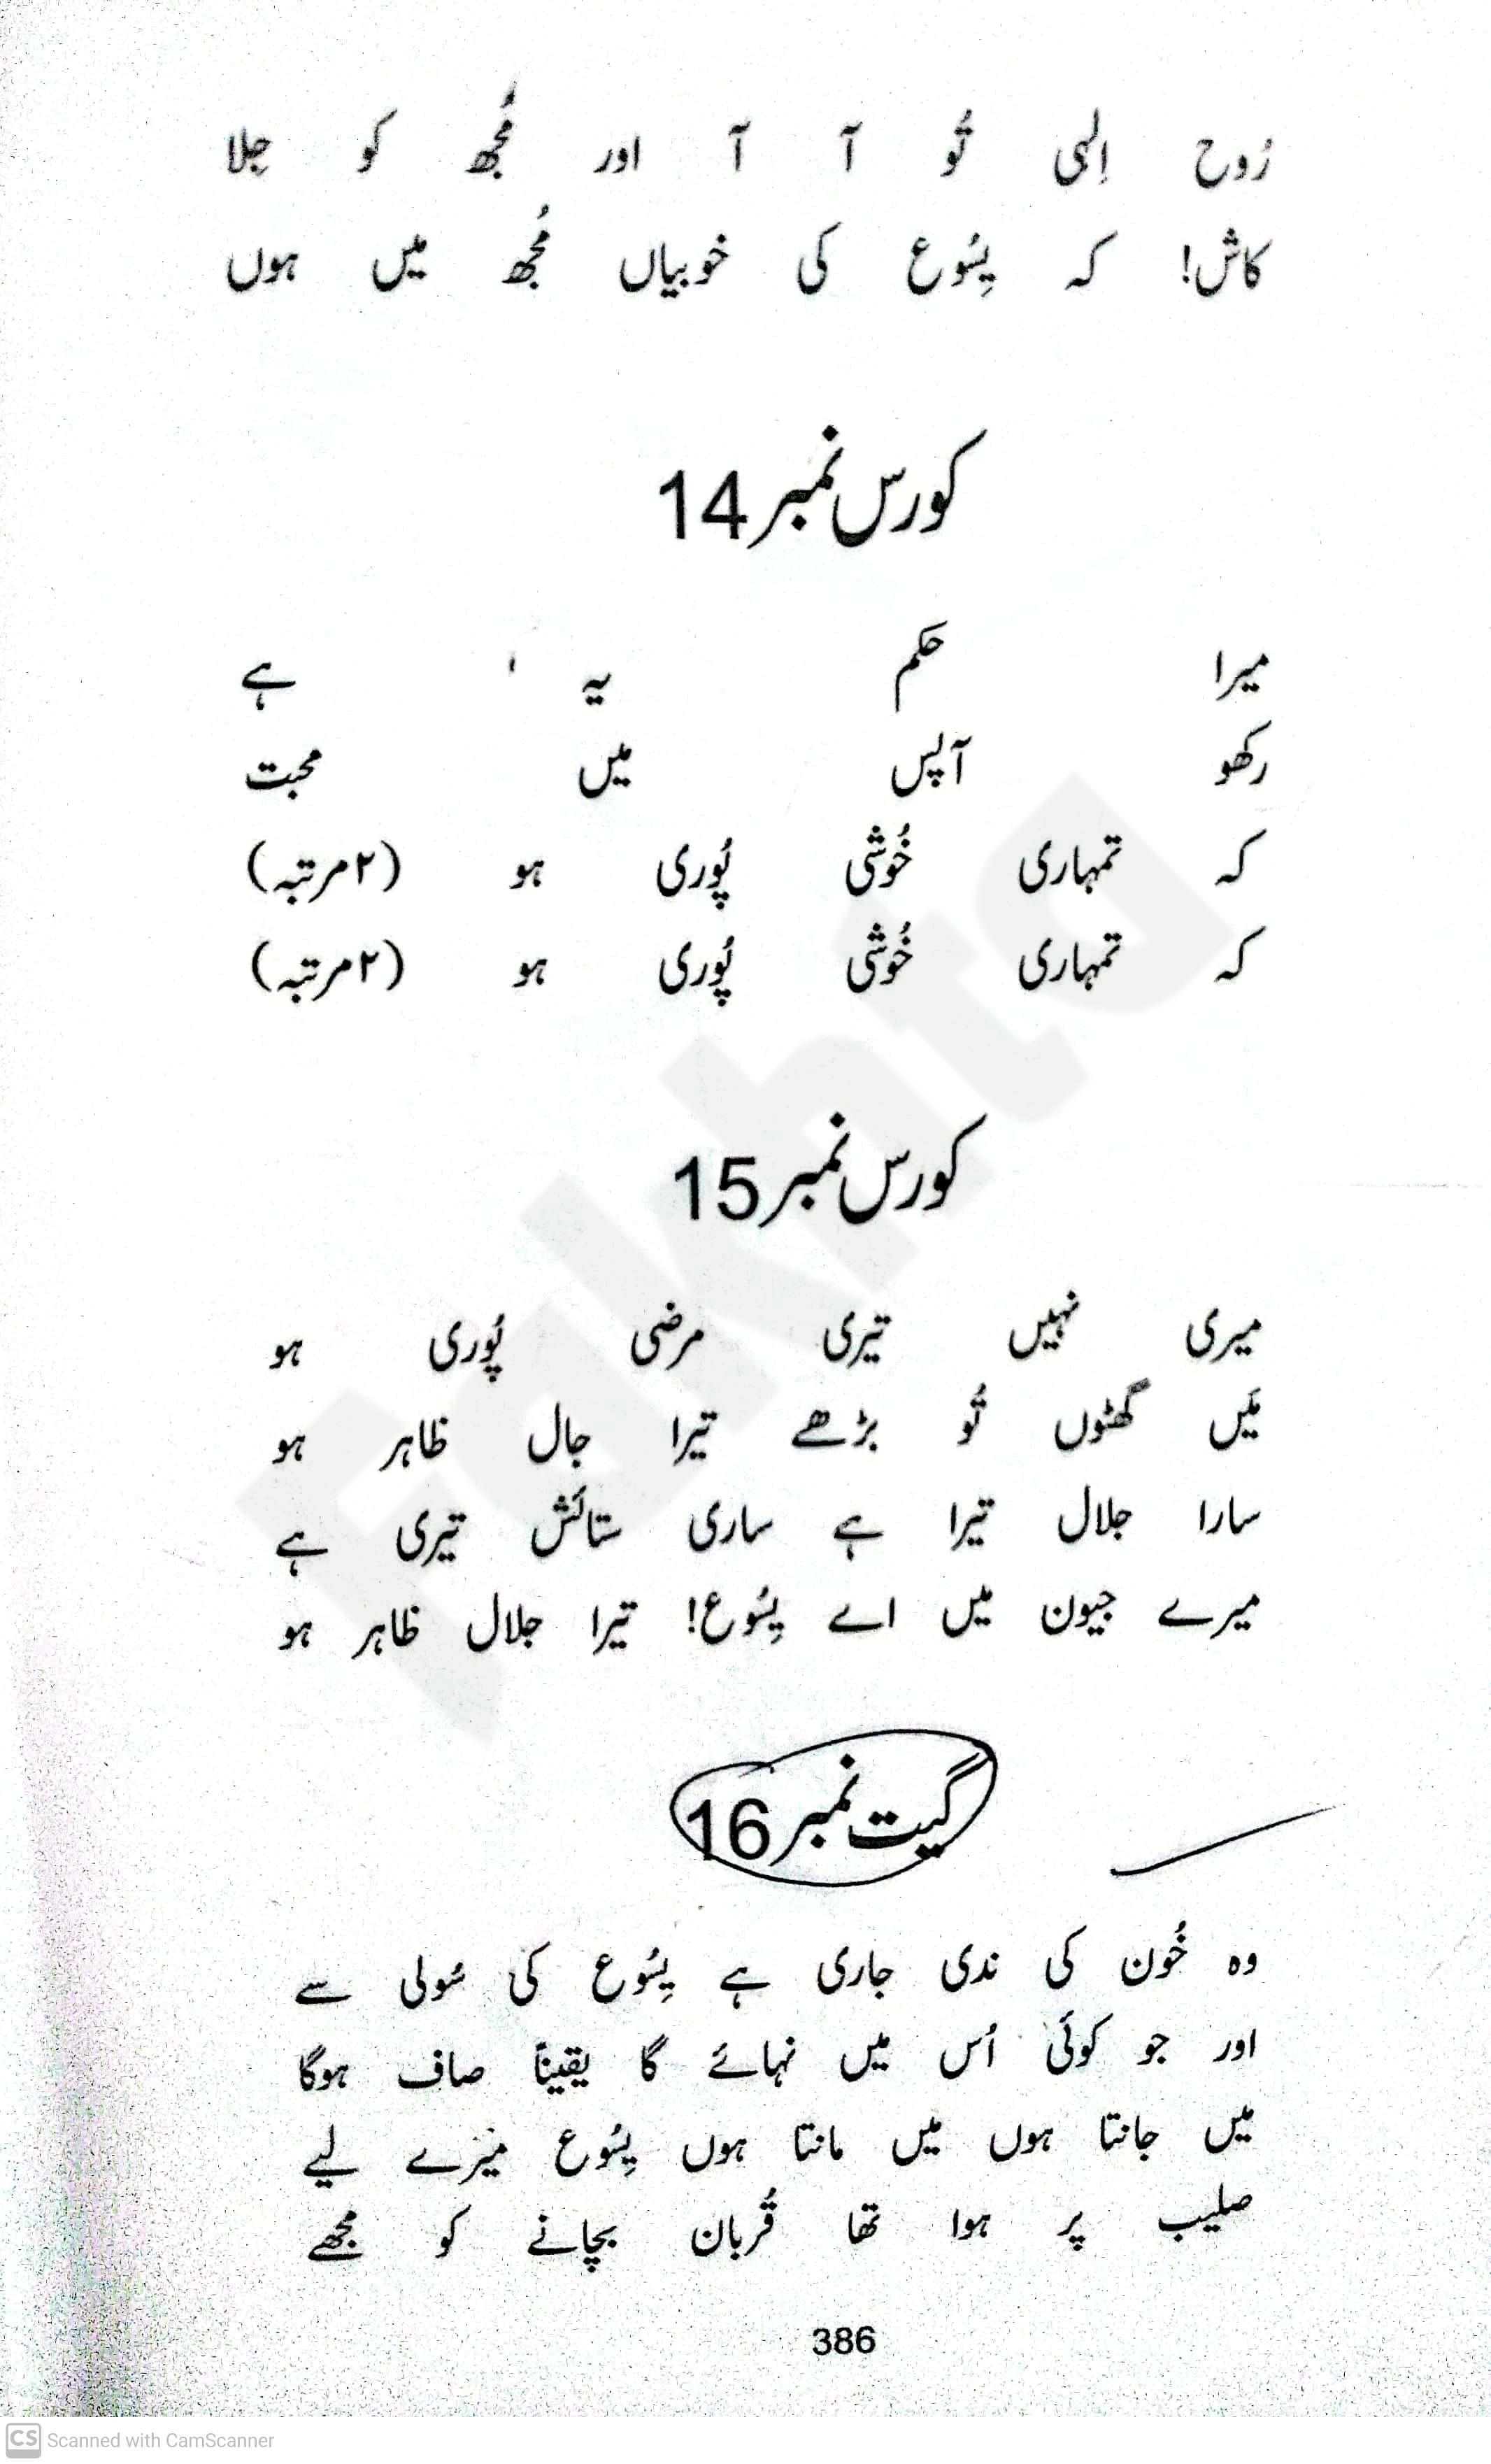 رُوح اِلٰہی تُو آ آ اور مُجھ کو جِلا
کاش! کہ یِسُوع کی خوبیاں مُجھ میں ہوں
کورس نمبر 14
میرا حکم یہ ہے
رکھو آپس میں محبت
کہ تمہاری خُوشی پُوری ہو (۲مرتبہ)
کہ تمہاری خُوشی پُوری ہو (۲مرتبہ)
کورس نمبر 15
میری نہیں تیری مرضی پُوری ہو
مَیں گھٹوں تُو بڑھے تیرا جال ظاہر ہو
سارا جلال تیرا ہے ساری ستائش تیری ہے
میرے جیون میں اے یِسُوع! تیرا جلال ظاہر ہو
گیت نمبر 16
وہ خُون کی ندی جاری ہے یِسُوع کی سُولی سے
اور جو کوئی اُس میں نہائے گا یقیناً صاف ہوگا
میں جانتا ہوں میں مانتا ہوں یِسُوع میرے لیے
صلیب پر ہوا تھا قُربان بچانے کو مجھے
386
Fakhta
CS Scanned with CamScanner